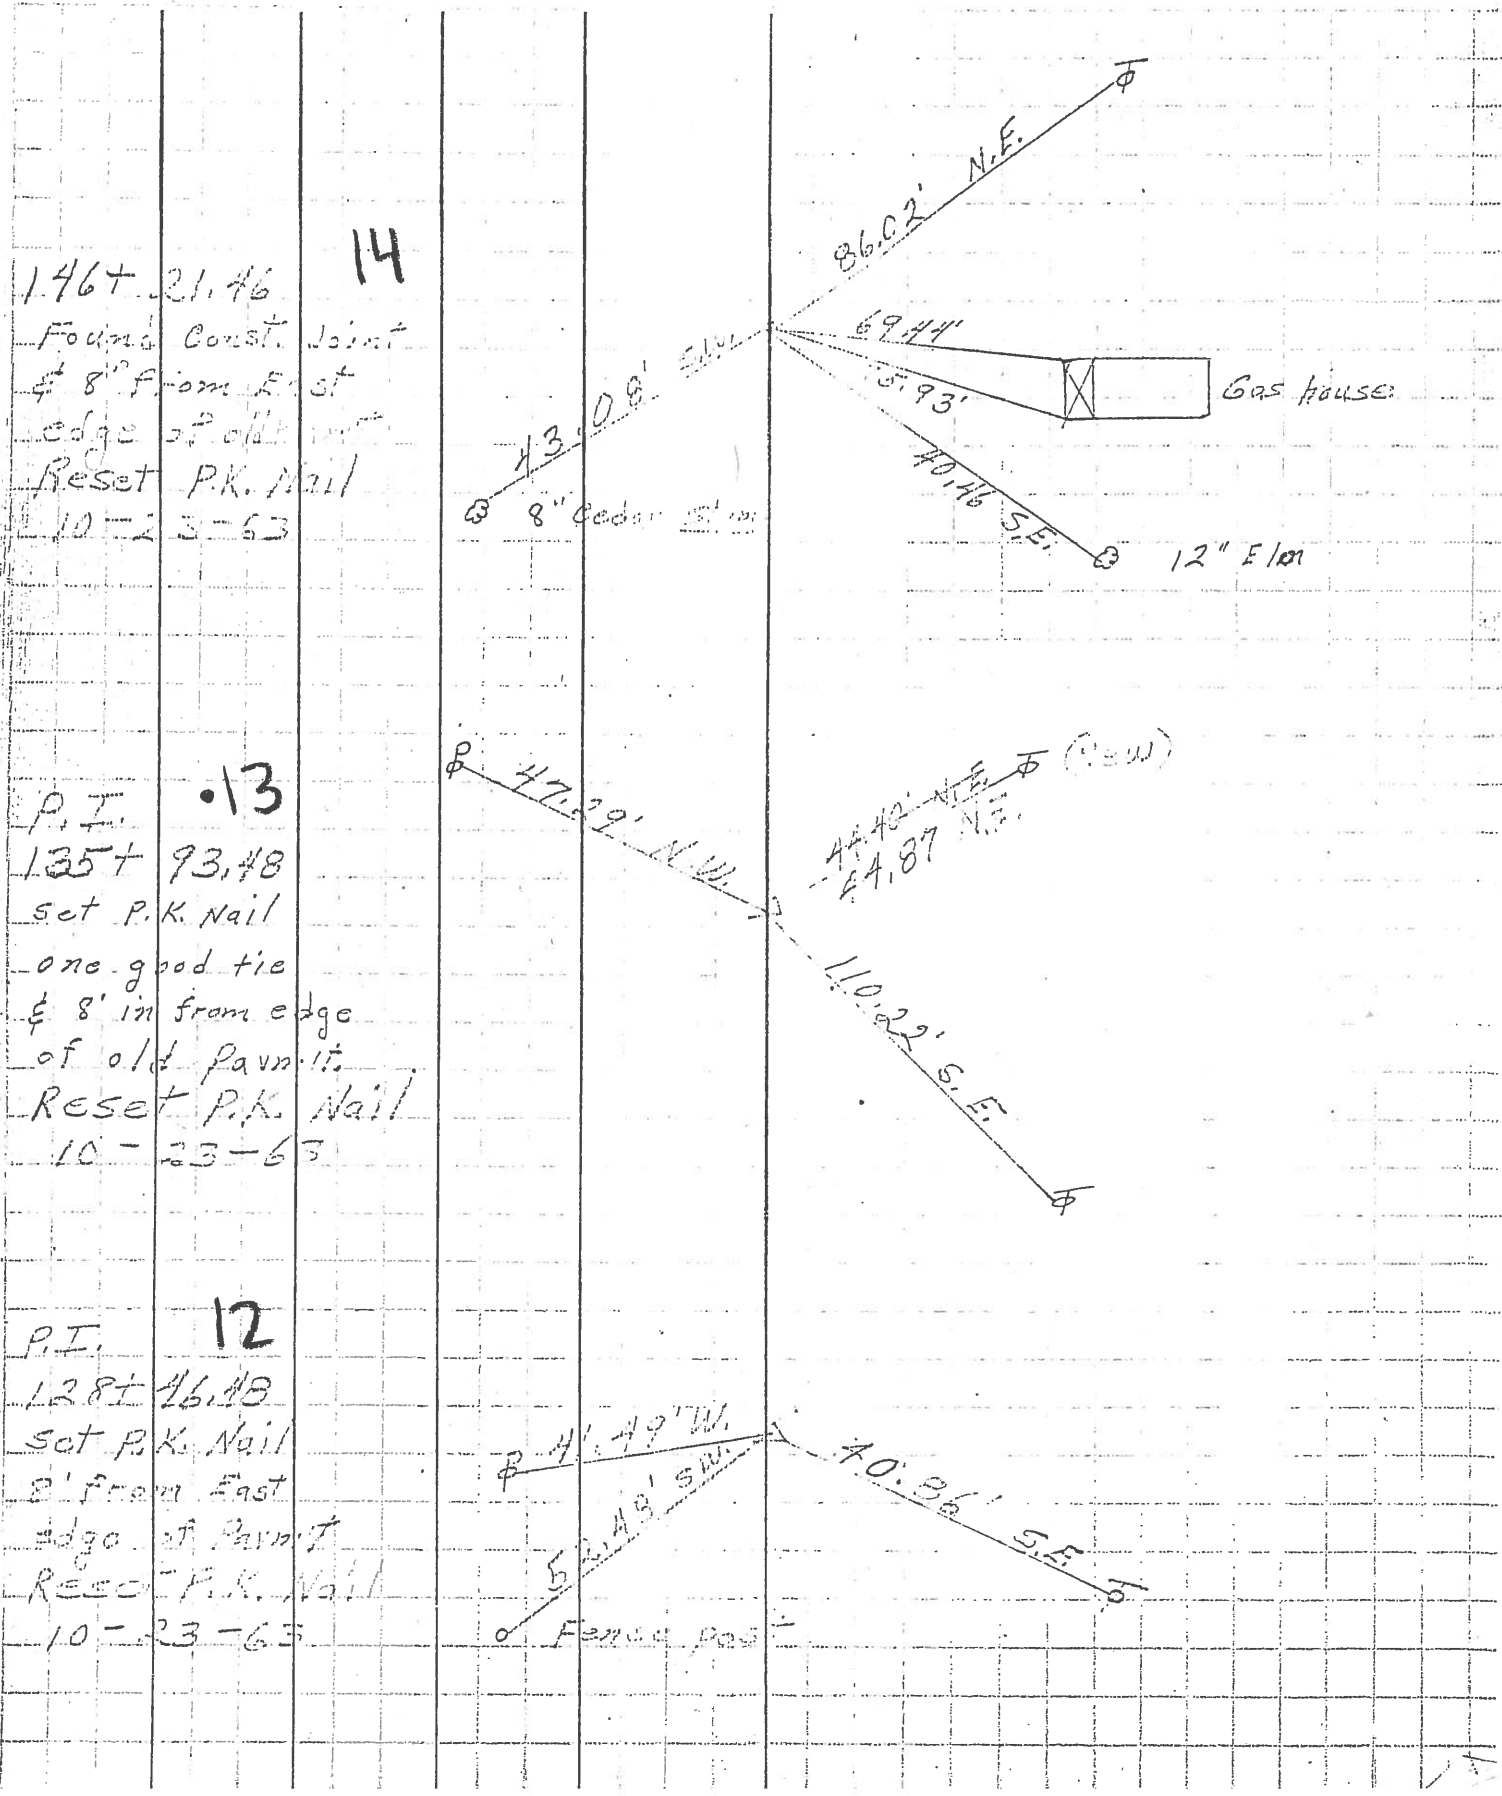 14
146+ 21.46
Found Const. Joint
& 8" from East
edge of old
Reset P.K. Nail
10-23-63
86.02' N.E.
69.44'
5.93'
Gas house
40.46 S.E.
12" Elm
43.08' S.W.
8" Cedar
.13
P.I.
135+ 93.48
set P.K. Nail
one good tie
& 8' in from edge
of old Pavm't.
Reset P.K. Nail
10-23-63
47.29' N.W.
44.40' N.E.
4.87 N.E.
(New)
110.22' S.E.
12
P.I.
128+ 46.48
set P.K. Nail
8' from East
edge of Pavm't
Reset P.K. Nail
10-23-63
41.49' W.
52.48' S.W.
Fence post
40.86' S.E.